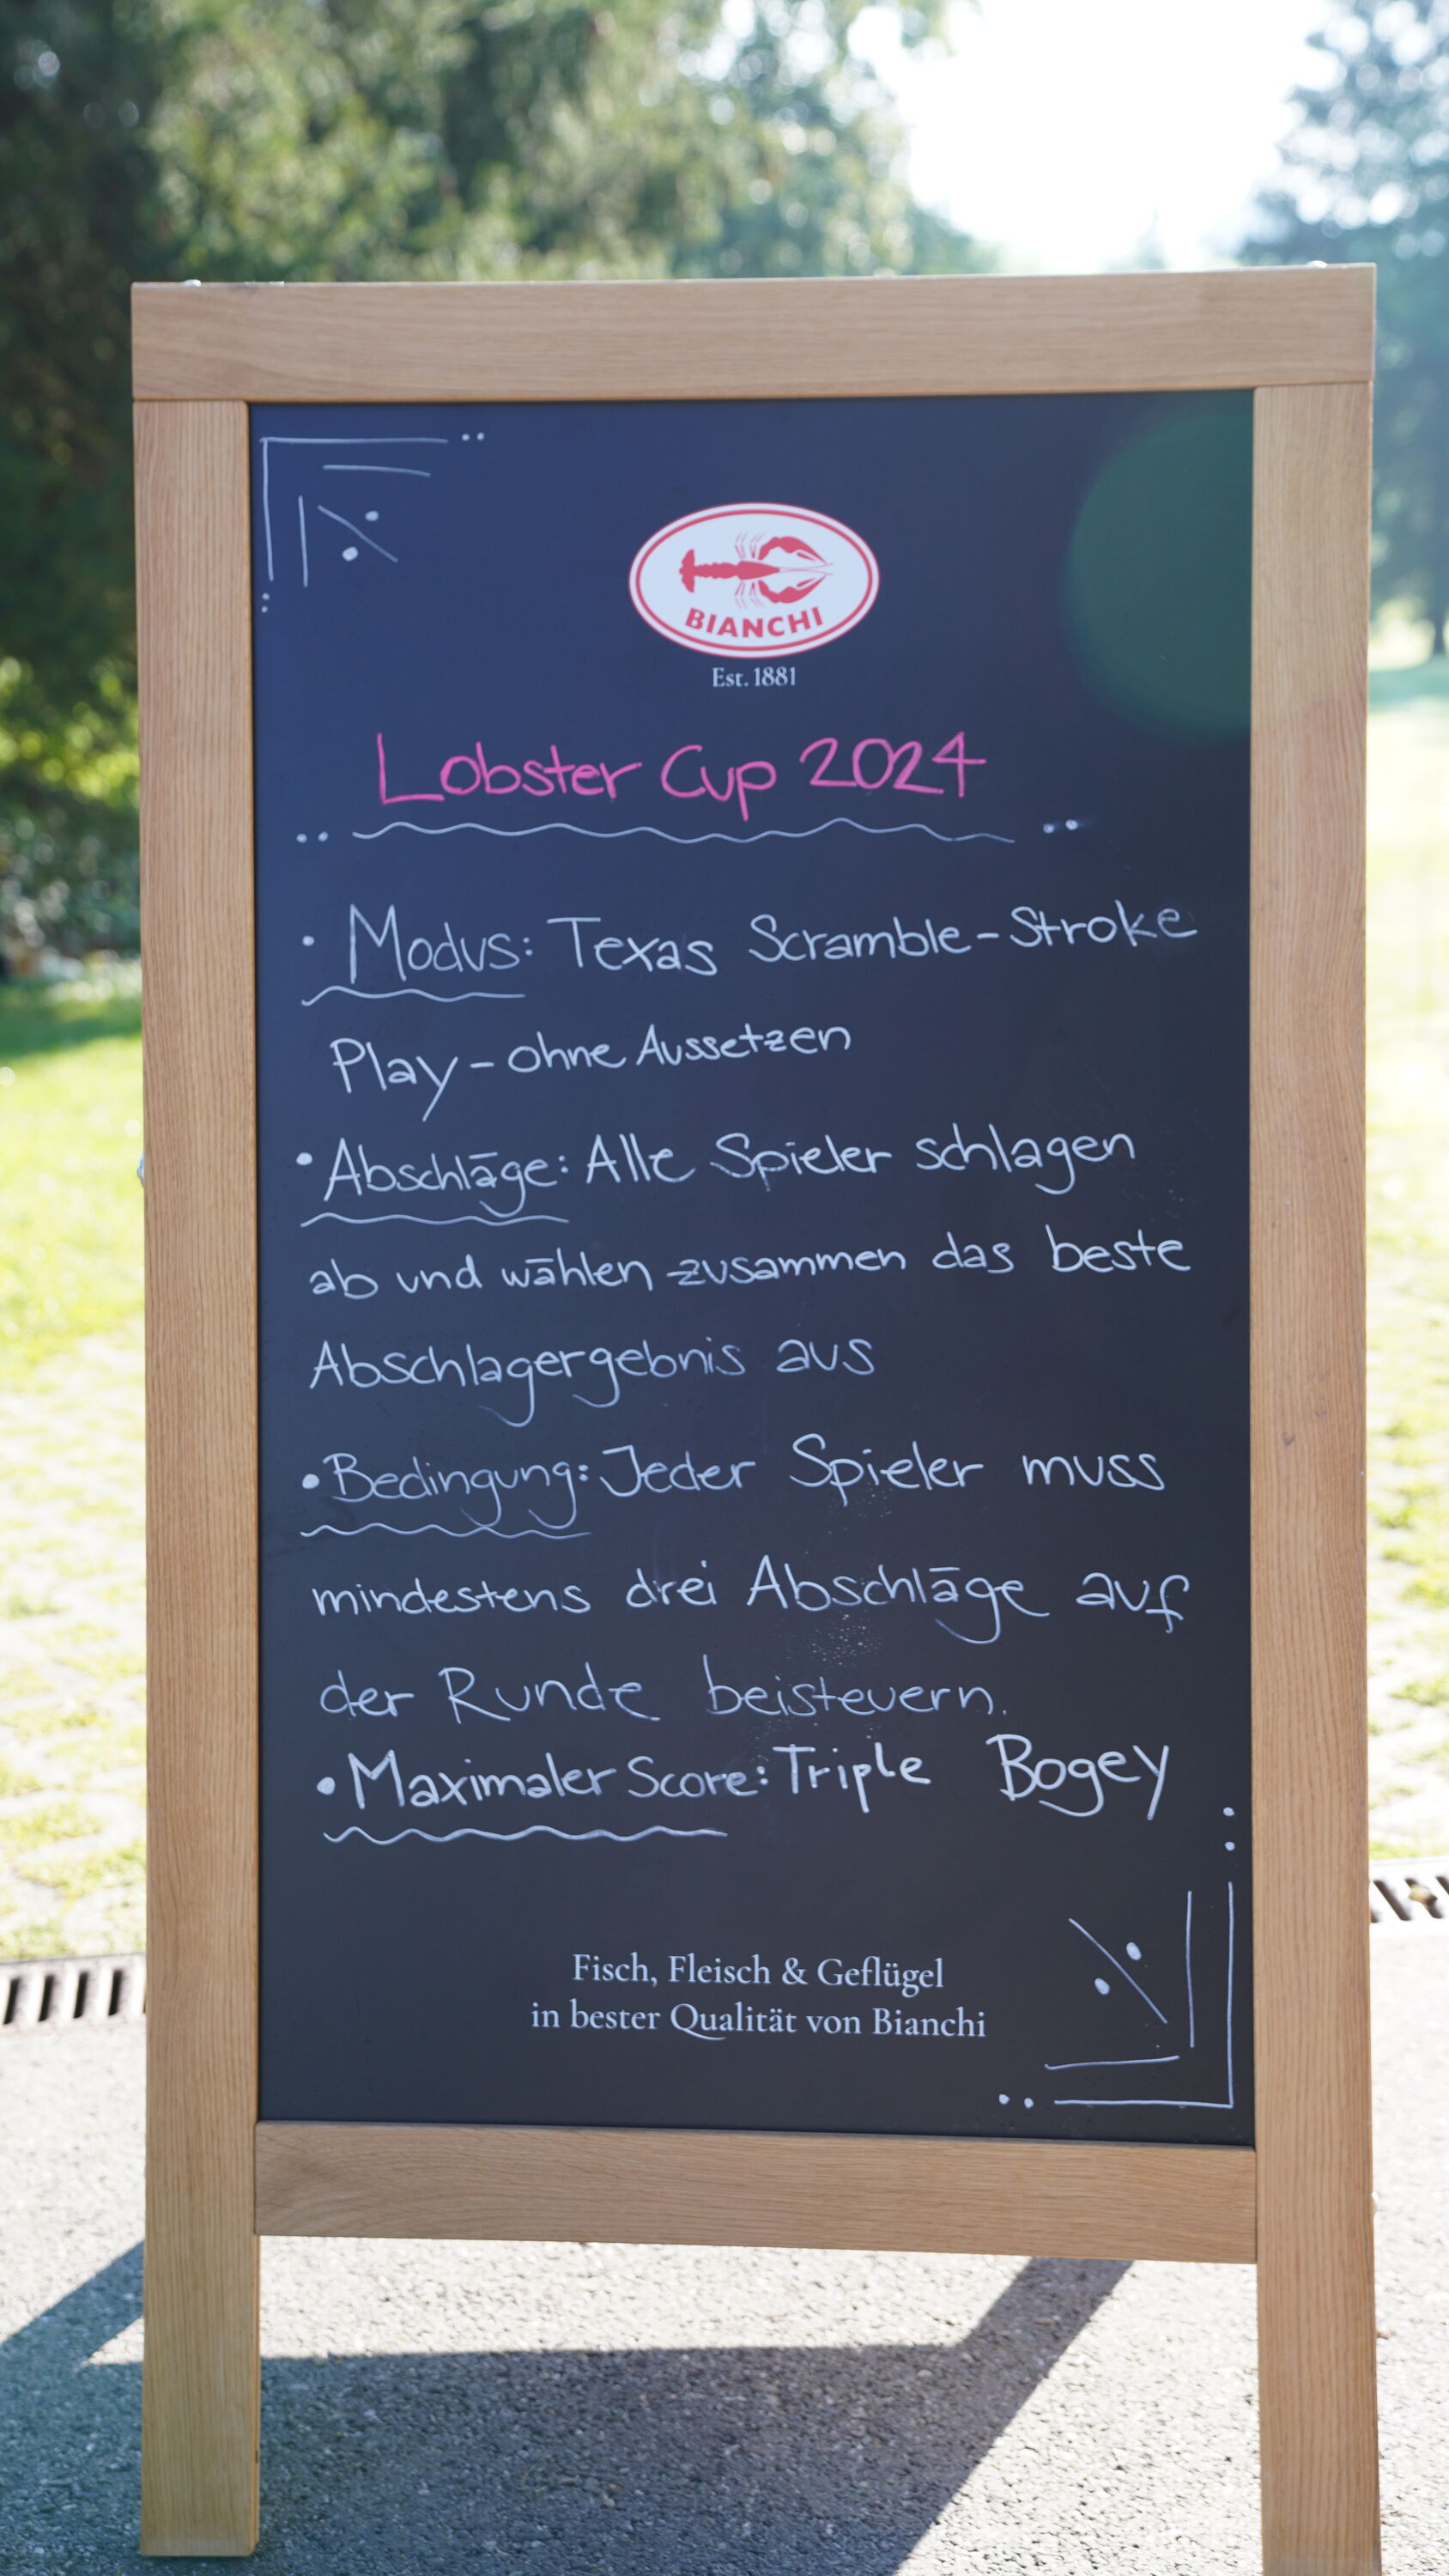 BIANCHI
Est. 1881
Lobster Cup 2024
• Modus: Texas Scramble-Stroke
Play - ohne Aussetzen
• Abschläge: Alle Spieler schlagen
ab und wählen zusammen das beste
Abschlagergebnis aus
• Bedingung: Jeder Spieler muss
mindestens drei Abschläge auf
der Runde beisteuern.
• Maximaler Score: Triple Bogey
Fisch, Fleisch & Geflügel
in bester Qualität von Bianchi